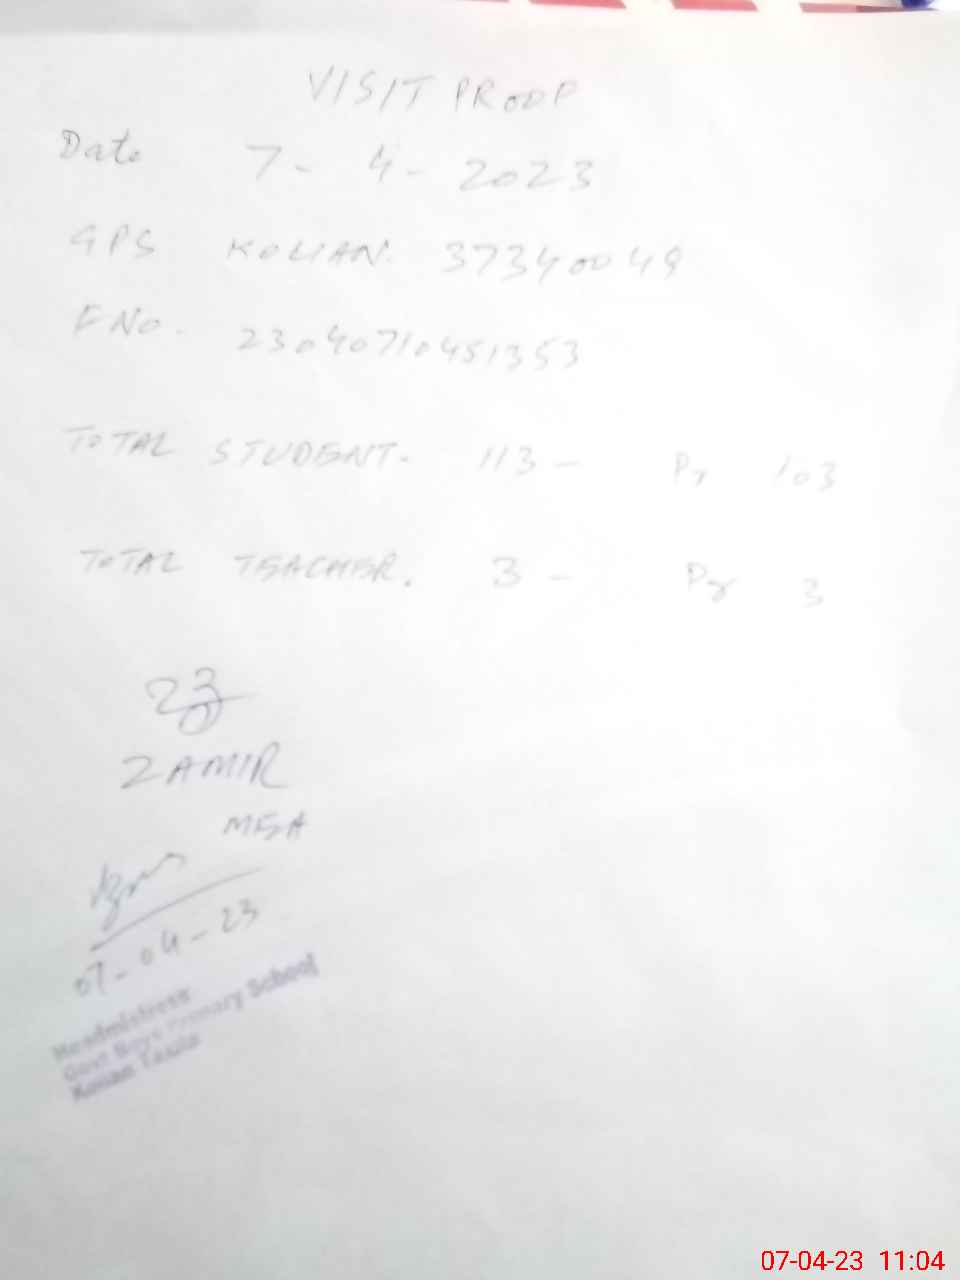 VISIT PROOF
Date 7 - 4 - 2023
GPS KOLIAN. 37340049
FNo. 23040710451353
TOTAL STUDENT. 113 - Pr 103
TOTAL TEACHER. 3 - Pr 3
ZAMIR
MEA
07-04-23
Headmistress
Govt Boys Primary School
Kolian Taxila
07-04-23 11:04